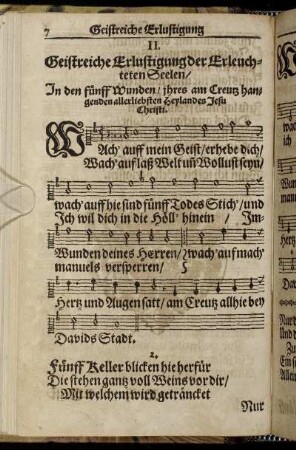 7 Geistreiche Erlustigung
II.
Geistreiche Erlustigung der Erleuch-
teten Seelen/
In den fünff Wunden/ jhres am Creutz han-
genden allerliebsten Heylandes Jesu
Christi.
WAch auff mein Geist/ erhebe dich/
Wach auf laß Welt uñ Wollust seyn/
wach auff hie sind fünff Todes Stich/ und
Ich wil dich in die Höll' hinein / Im̃
Wunden deines Herren/ wach auf mach
manuels versperren/
Hertz und Augen satt/ am Creutz allhie bey
Davids Stadt.
2.
Fünff Keller blicken hie herfür
Die stehen gantz voll Weins vor dir/
Mit welchem wird geträncket
Nur